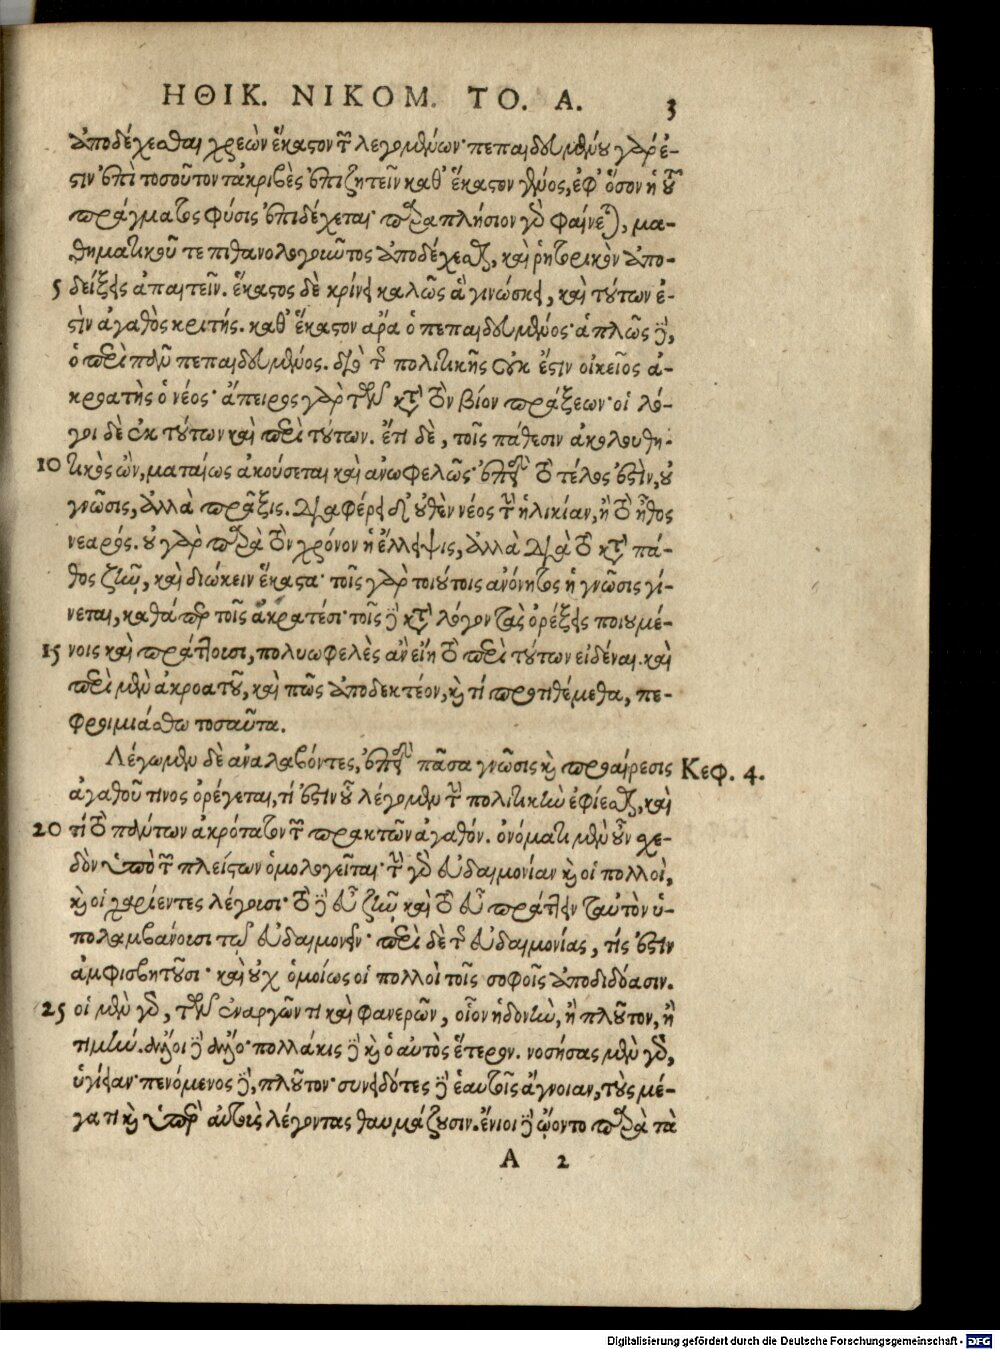 ΗΘΙΚ. ΝΙΚΟΜ. ΤΟ. Α. 3
ἀποδέχεσθαι χρεὼν ἕκαστον τῶν λεγομένων· πεπαιδευμένου γάρ ἐ-
στιν ἐπὶ τοσοῦτον τἀκριβὲς ἐπιζητεῖν καθ' ἕκαστον γένος, ἐφ' ὅσον ἡ τοῦ
πράγματος φύσις ἐπιδέχεται· παραπλήσιον γὰρ φαίνεται, μα-
θηματικοῦ τε πιθανολογοῦντος ἀποδέχεσθαι, καὶ ῥητορικὸν ἀπο-
5 δείξεις ἀπαιτεῖν. ἕκαστος δὲ κρίνει καλῶς ἃ γινώσκει, καὶ τούτων ἐ-
στὶν ἀγαθὸς κριτής. καθ' ἕκαστον ἄρα ὁ πεπαιδευμένος· ἁπλῶς δὲ,
ὁ περὶ πᾶν πεπαιδευμένος. διὸ τῆς πολιτικῆς οὐκ ἔστιν οἰκεῖος ἀ-
κροατὴς ὁ νέος· ἄπειρος γὰρ τῶν κατὰ τὸν βίον πράξεων· οἱ λό-
γοι δὲ ἐκ τούτων καὶ περὶ τούτων. ἔτι δὲ, τοῖς πάθεσιν ἀκολουθη-
10 τικὸς ὢν, ματαίως ἀκούσεται καὶ ἀνωφελῶς· ἐπειδὴ τὸ τέλος ἐστὶν, οὐ
γνῶσις, ἀλλὰ πρᾶξις. διαφέρει δ' οὐθὲν νέος τὴν ἡλικίαν, ἢ τὸ ἦθος
νεαρός. οὐ γὰρ παρὰ τὸν χρόνον ἡ ἔλλειψις, ἀλλὰ διὰ τὸ κατὰ πά-
θος ζῆν, καὶ διώκειν ἕκαστα· τοῖς γὰρ τοιούτοις ἀνόνητος ἡ γνῶσις γί-
νεται, καθάπερ τοῖς ἀκρατέσι· τοῖς δὲ κατὰ λόγον τὰς ὀρέξεις ποιουμέ-
15 νοις καὶ πράττουσι, πολυωφελὲς ἂν εἴη τὸ περὶ τούτων εἰδέναι. καὶ
περὶ μὲν ἀκροατοῦ, καὶ πῶς ἀποδεκτέον, καὶ τί προτιθέμεθα, πε-
φροιμιάσθω τοσαῦτα.
Λέγωμεν δὲ ἀναλαβόντες, ἐπειδὴ πᾶσα γνῶσις καὶ προαίρεσις Κεφ. 4.
ἀγαθοῦ τινος ὀρέγεται, τί ἐστὶν οὗ λέγομεν τὴν πολιτικὴν ἐφίεσθαι, καὶ
20 τί τὸ πάντων ἀκρότατον τῶν πρακτῶν ἀγαθόν. ὀνόματι μὲν οὖν σχε-
δὸν ὑπὸ τῶν πλείστων ὁμολογεῖται· τὴν γὰρ εὐδαιμονίαν καὶ οἱ πολλοὶ,
καὶ οἱ χαρίεντες λέγουσι· τὸ δὲ εὖ ζῆν καὶ τὸ εὖ πράττειν ταὐτὸν ὑ-
πολαμβάνουσι τῷ εὐδαιμονεῖν· περὶ δὲ τῆς εὐδαιμονίας, τίς ἐστιν
ἀμφισβητοῦσι· καὶ οὐχ ὁμοίως οἱ πολλοὶ τοῖς σοφοῖς ἀποδιδόασιν.
25 οἱ μὲν γὰρ, τῶν ἐναργῶν τι καὶ φανερῶν, οἷον ἡδονὴν, ἢ πλοῦτον, ἢ
τιμήν. ἄλλοι δὲ ἄλλο· πολλάκις δὲ καὶ ὁ αὐτὸς ἕτερον. νοσήσας μὲν γὰρ,
ὑγίειαν· πενόμενος δὲ, πλοῦτον· συνειδότες δὲ ἑαυτοῖς ἄγνοιαν, τοὺς μέ-
γα τι καὶ ὑπὲρ αὐτοὺς λέγοντας θαυμάζουσιν. ἔνιοι δὲ ᾤοντο παρὰ τὰ
A 2
Digitalisierung gefördert durch die Deutsche Forschungsgemeinschaft - DFG